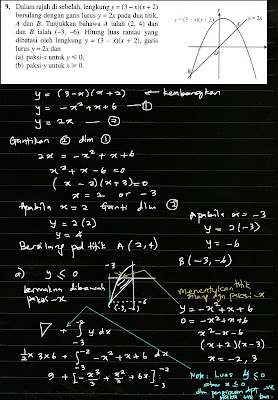 9. Dalam rajah di sebelah, lengkung y = (3 – x)(x + 2)
bersilang dengan garis lurus y = 2x pada dua titik,
A dan B. Tunjukkan bahawa A ialah (2, 4) dan
dan B ialah (–3, –6). Hitung luas rantau yang
dibatasi oleh lengkung y = (3 – x)(x + 2), garis
lurus y = 2x dan
(a) paksi-y untuk y ⩽ 0,
(b) paksi-y untuk x ⩾ 0.
y = (3 – x)(x + 2)
y
y = 2x
A
O
x
B
y = (3-x)(x+2) ← kembangkan
y = -x² + x + 6 — ①
y = 2x — ②
Gantikan ② dlm ①
2x = -x² + x + 6
x² + x - 6 = 0
(x - 2)(x + 3) = 0
x = 2 or -3
Apabila x = 2 Ganti dlm ②
y = 2(2)
y = 4
Bersilang pd titik A (2,4)
Apabila x = -3
y = 2(-3)
y = -6
B (-3,-6)
a) y ⩽ 0
bermakna dibawah
paksi-x
-3
-6
(-3,-6)
menentukan titik
silang dgn paksi-x
y = -x² + x + 6
0 = -x² + x + 6
x² - x - 6
(x+2)(x-3)
x = -2, 3
+ ∫ y dx
-3
½ × 3×6 + ∫ -x² + x + 6 dx
-2
-3
9 + [-x³/3 + x²/2 + 6x]
-2
-3
Note: Luas y ⩽ 0
atau x ⩽ 0